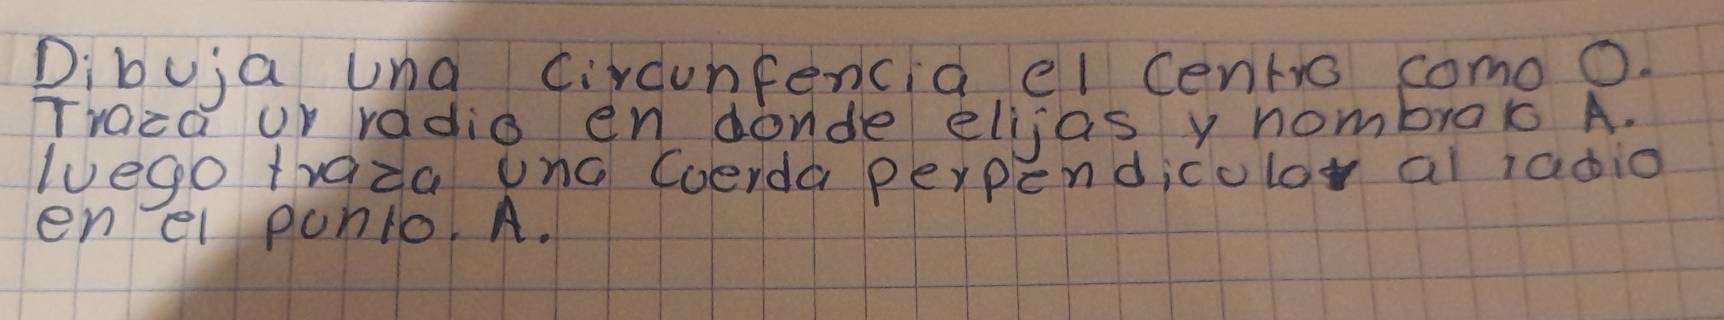 Dibuja una circunfencia el centro como O.
Traza un radio en donde elijas y nombralo A.
luego traza una cuerda perpendicular al radio
en el punto. A.